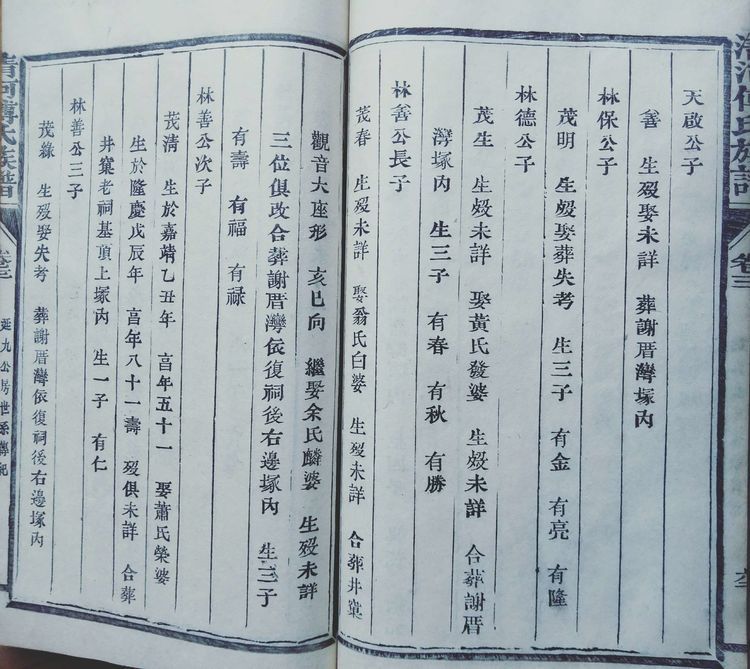 天啟公子
善 生歿娶未詳 葬謝厝灣塚內
林保公子
茂明 生歿娶葬失考 生三子 有金 有亮 有隆
林德公子
茂生 生歿未詳 娶黃氏發婆 生歿未詳 合葬謝厝
灣塚內 生三子 有春 有秋 有勝
林善公長子
茂春 生歿未詳 娶翁氏白婆 生歿未詳 合葬井窠
觀音大座形 亥巳向 繼娶余氏麟婆 生歿未詳
三位俱改合葬謝厝灣依復祠後右邊塚內 生三子
有壽 有福 有祿
林善公次子
茂清 生於嘉靖乙丑年 亯年五十一 娶蕭氏榮婆
生於隆慶戊辰年 亯年八十一壽 歿俱未詳 合葬
井窠老祠基頂上塚內 生一子 有仁
林善公三子
茂綠 生歿娶失考 葬謝厝灣依復祠後右邊塚內
清河傅氏族譜
卷三
延九公房世系傳紀